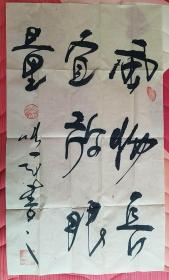 風物長
宜放眼
量